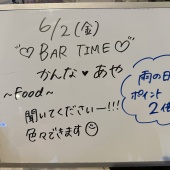 6/2(金)
"♡BAR TIME♡"
かんな♥あや
~Food~
聞いてくださいー!!!
色々できます☺
雨の日
ポイント
2倍